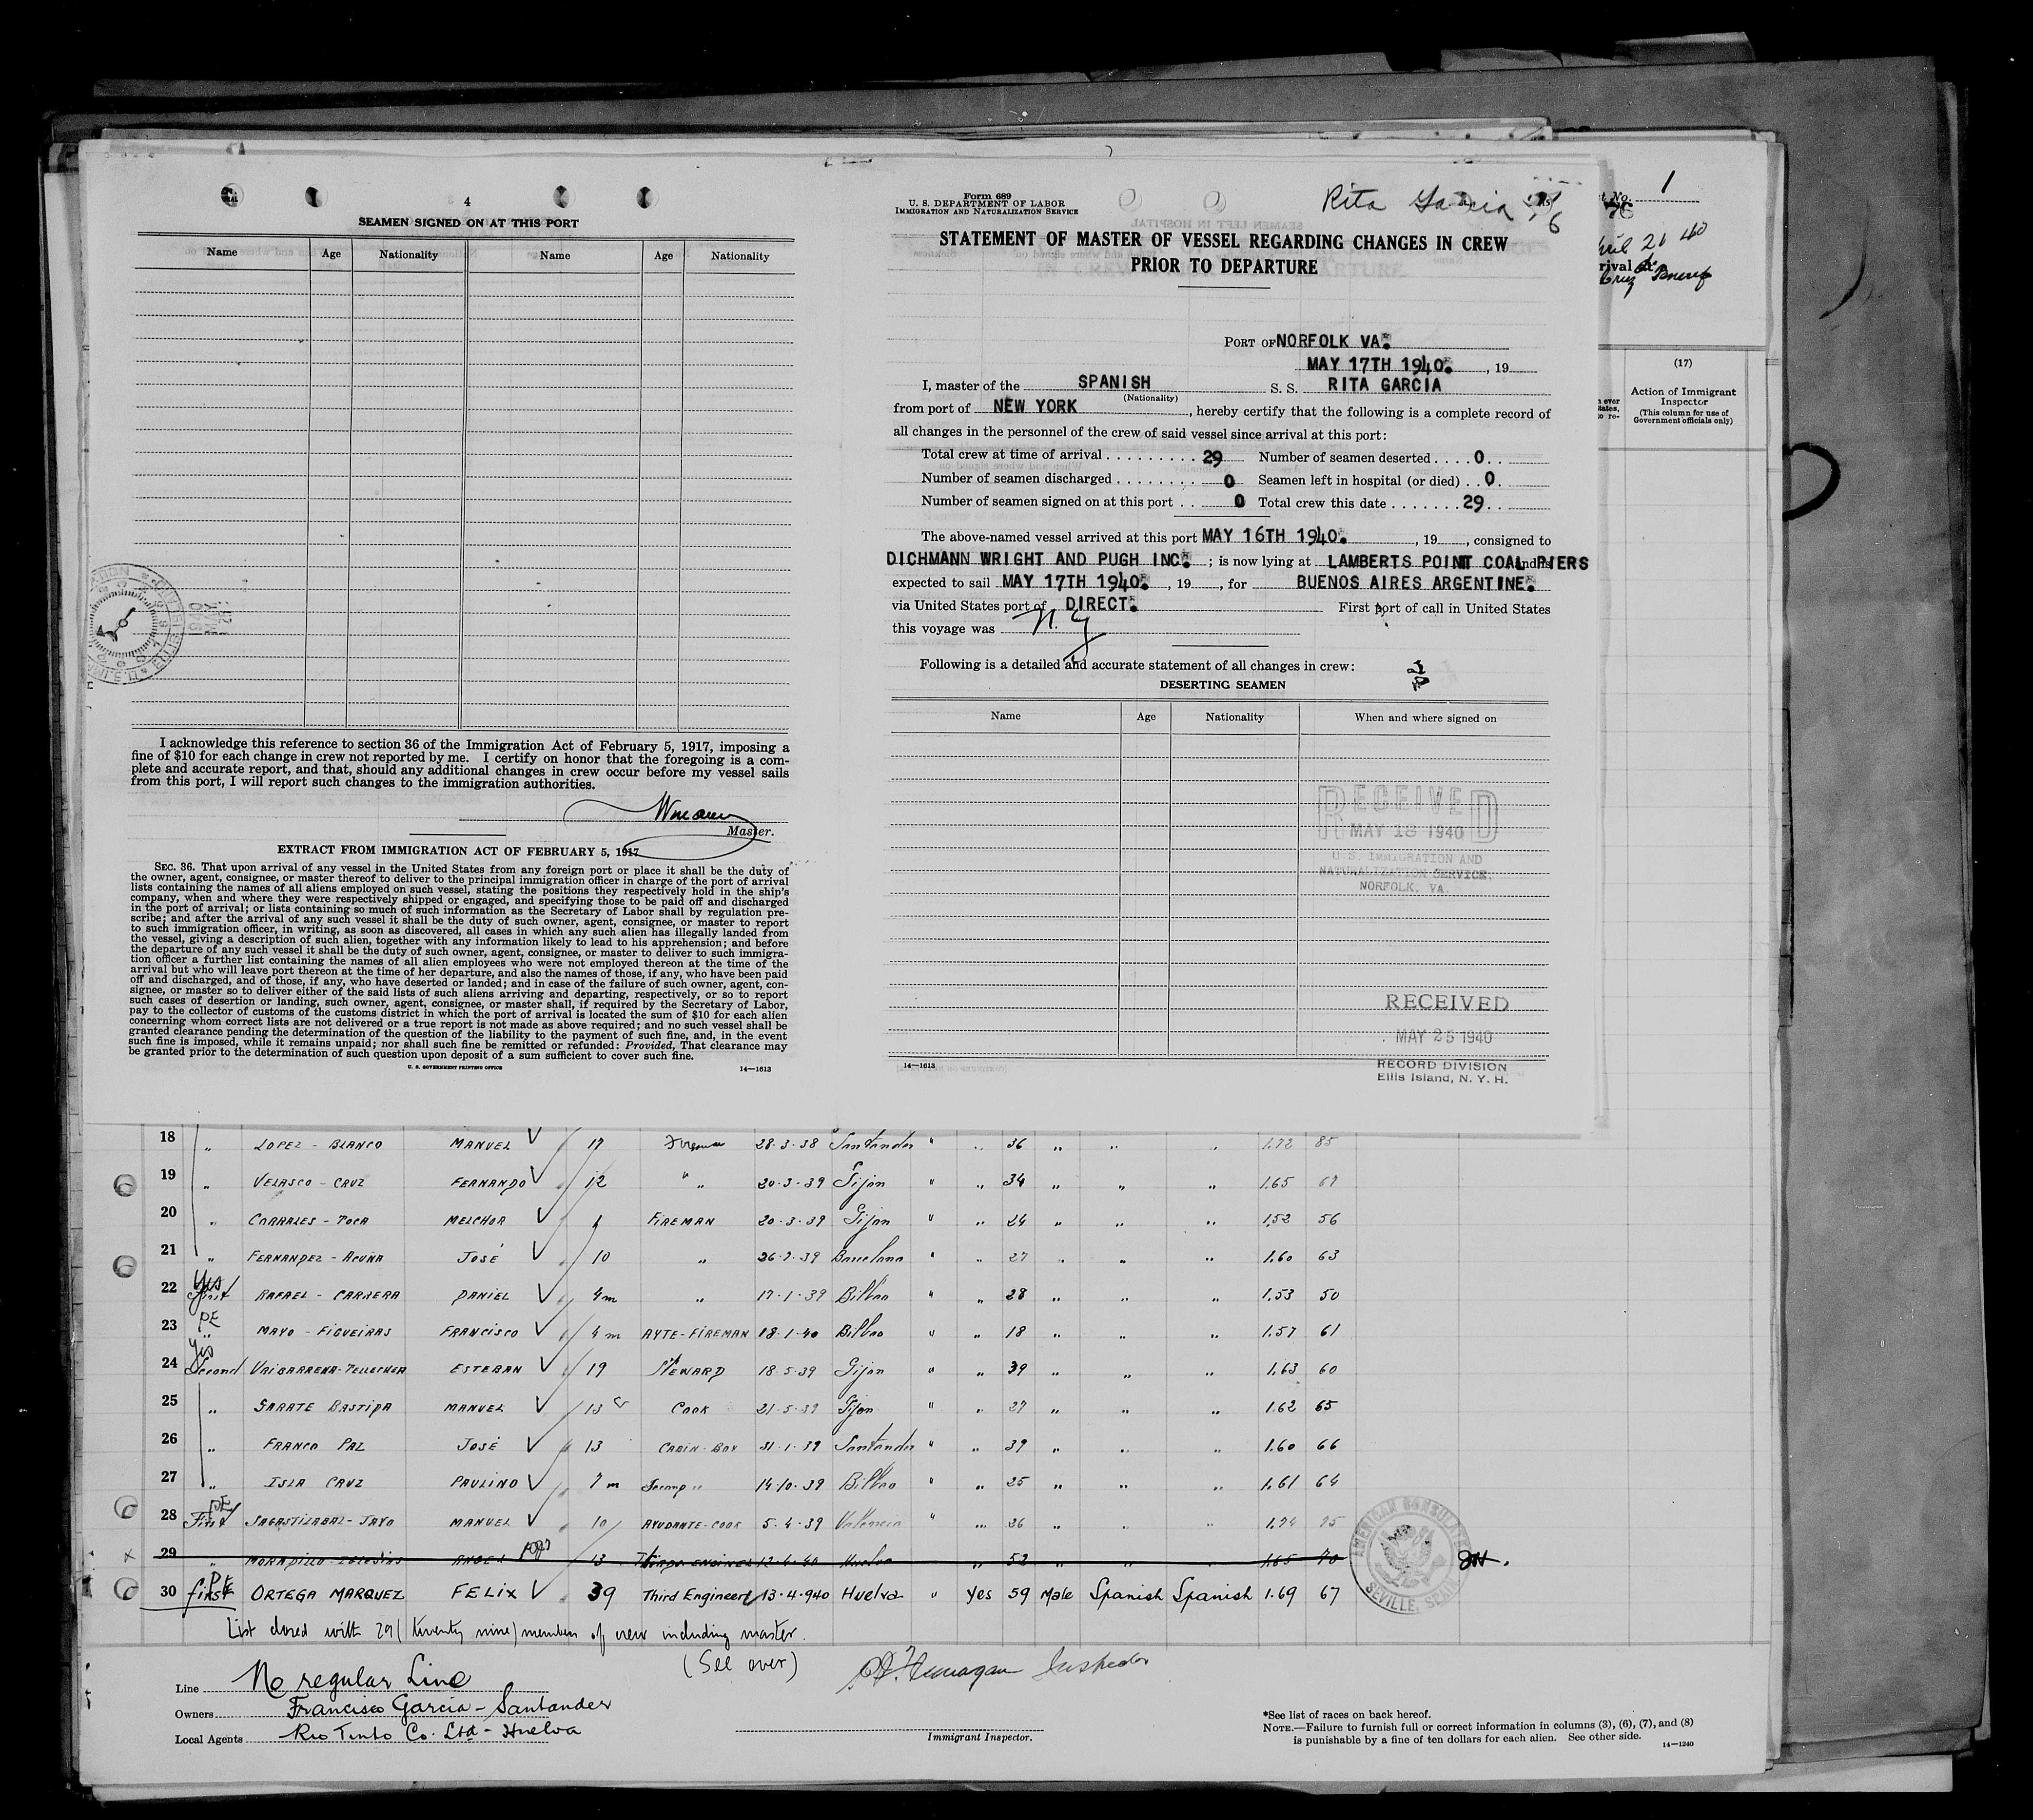 4
SEAMEN SIGNED ON AT THIS PORT
Name Age Nationality Name Age Nationality
I acknowledge this reference to section 36 of the Immigration Act of February 5, 1917, imposing a
fine of $10 for each change in crew not reported by me. I certify on honor that the foregoing is a com-
plete and accurate report, and that, should any additional changes in crew occur before my vessel sails
from this port, I will report such changes to the immigration authorities.
Master.
EXTRACT FROM IMMIGRATION ACT OF FEBRUARY 5, 1917
SEC. 36. That upon arrival of any vessel in the United States from any foreign port or place it shall be the duty of
the owner, agent, consignee, or master thereof to deliver to the principal immigration officer in charge of the port of arrival
lists containing the names of all aliens employed on such vessel, stating the positions they respectively hold in the ship's
company, when and where they were respectively shipped or engaged, and specifying those to be paid off and discharged
in the port of arrival; or lists containing so much of such information as the Secretary of Labor shall by regulation pre-
scribe; and after the arrival of any such vessel it shall be the duty of such owner, agent, consignee, or master to report
to such immigration officer, in writing, as soon as discovered, all cases in which any such alien has illegally landed from
the vessel, giving a description of such alien, together with any information likely to lead to his apprehension; and before
the departure of any such vessel it shall be the duty of such owner, agent, consignee, or master to deliver to such immigra-
tion officer a further list containing the names of all alien employees who were not employed thereon at the time of the
arrival but who will leave port thereon at the time of her departure, and also the names of those, if any, who have been paid
off and discharged, and of those, if any, who have deserted or landed; and in case of the failure of such owner, agent, con-
signee, or master so to deliver either of the said lists of such aliens arriving and departing, respectively, or so to report
such cases of desertion or landing, such owner, agent, consignee, or master shall, if required by the Secretary of Labor,
pay to the collector of customs of the customs district in which the port of arrival is located the sum of $10 for each alien
concerning whom correct lists are not delivered or a true report is not made as above required; and no such vessel shall be
granted clearance pending the determination of the question of the liability to the payment of such fine, and, in the event
such fine is imposed, while it remains unpaid; nor shall such fine be remitted or refunded: Provided, That clearance may
be granted prior to the determination of such question upon deposit of a sum sufficient to cover such fine.
U. S. GOVERNMENT PRINTING OFFICE 14—1613
Form 689
U. S. DEPARTMENT OF LABOR
IMMIGRATION AND NATURALIZATION SERVICE
Rita Garcia
STATEMENT OF MASTER OF VESSEL REGARDING CHANGES IN CREW
PRIOR TO DEPARTURE
PORT OF NORFOLK VA.
MAY 17TH 1940. , 19
I, master of the SPANISH S. S. RITA GARCIA
(Nationality)
from port of NEW YORK , hereby certify that the following is a complete record of
all changes in the personnel of the crew of said vessel since arrival at this port:
Total crew at time of arrival 29 Number of seamen deserted 0
Number of seamen discharged 0 Seamen left in hospital (or died) 0
Number of seamen signed on at this port 0 Total crew this date 29
The above-named vessel arrived at this port MAY 16TH 1940. , 19 , consigned to
DICHMANN WRIGHT AND PUGH INC. ; is now lying at LAMBERTS POINT COAL PIERS
expected to sail MAY 17TH 1940. , 19 , for BUENOS AIRES ARGENTINE.
via United States port of DIRECT. First port of call in United States
this voyage was N. Y
Following is a detailed and accurate statement of all changes in crew:
DESERTING SEAMEN
Name Age Nationality When and where signed on
RECEIVED
MAY 18 1940
U. S. IMMIGRATION AND
NATURALIZATION SERVICE.
NORFOLK, VA.
RECEIVED
MAY 25 1940
RECORD DIVISION
Ellis Island, N. Y. H.
14—1613
1
(17)
Action of Immigrant
Inspector
(This column for use of
Government officials only)
18 " LOPEZ - BLANCO MANUEL 17 Fireman 28-3-38 Santander " " 36 " " " 1.72 85
19 " VELASCO - CRUZ FERNANDO 12 " " 20-3-39 Gijon " " 34 " " " 1.65 67
20 " CORRALES - POCA MELCHOR FIREMAN 20-3-39 Gijon " " 24 " " " 1.52 56
21 " FERNANDEZ - ACUÑA JOSÉ 10 " 26-7-39 Barcelona " " 27 " " " 1.60 63
22 Yes First RAFAEL - CARRERA DANIEL 4 m " 17-1-39 Bilbao " " 28 " " " 1.53 50
23 PE " MAYO - FIGUEIRAS FRANCISCO 4 m AYTE-FIREMAN 18-1-40 Bilbao " " 18 " " " 1.57 61
24 Yes Second ESTEBAN 19 STEWARD 18-5-39 Gijon " " 39 " " " 1.63 60
25 " SARATE BASTIDA MANUEL 13 COOK 21-5-39 Gijon " " 27 " " " 1.62 65
26 " FRANCO PAZ JOSÉ 13 CABIN-BOY 31-1-39 Santander " " 39 " " " 1.60 66
27 " ISLA CRUZ PAULINO 7 m " 14-10-39 Bilbao " " 25 " " " 1.61 64
28 PE First SAGASTIZABAL-JAYO MANUEL 10 AYUDANTE-COOK 5-4-39 Valencia " " 26 " " " 1.74 75
29 " MORADILLO-IGLESIAS ANGEL 13 12-4-40 Huelva " 52 " " " 1.65 70
30 PE first ORTEGA MARQUEZ FELIX 39 Third Engineer 13-4-940 Huelva " Yes 59 Male Spanish Spanish 1.69 67
AMERICAN CONSULATE
SEVILLE, SPAIN
List closed with 29 (twenty nine) members of crew including master.
(See over)
Inspector
Line No regular Line
Owners Francisco Garcia - Santander
Local Agents Rio Tinto Co. Ltd - Huelva
Immigrant Inspector.
*See list of races on back hereof.
NOTE.—Failure to furnish full or correct information in columns (3), (6), (7), and (8)
is punishable by a fine of ten dollars for each alien. See other side.
14—1240